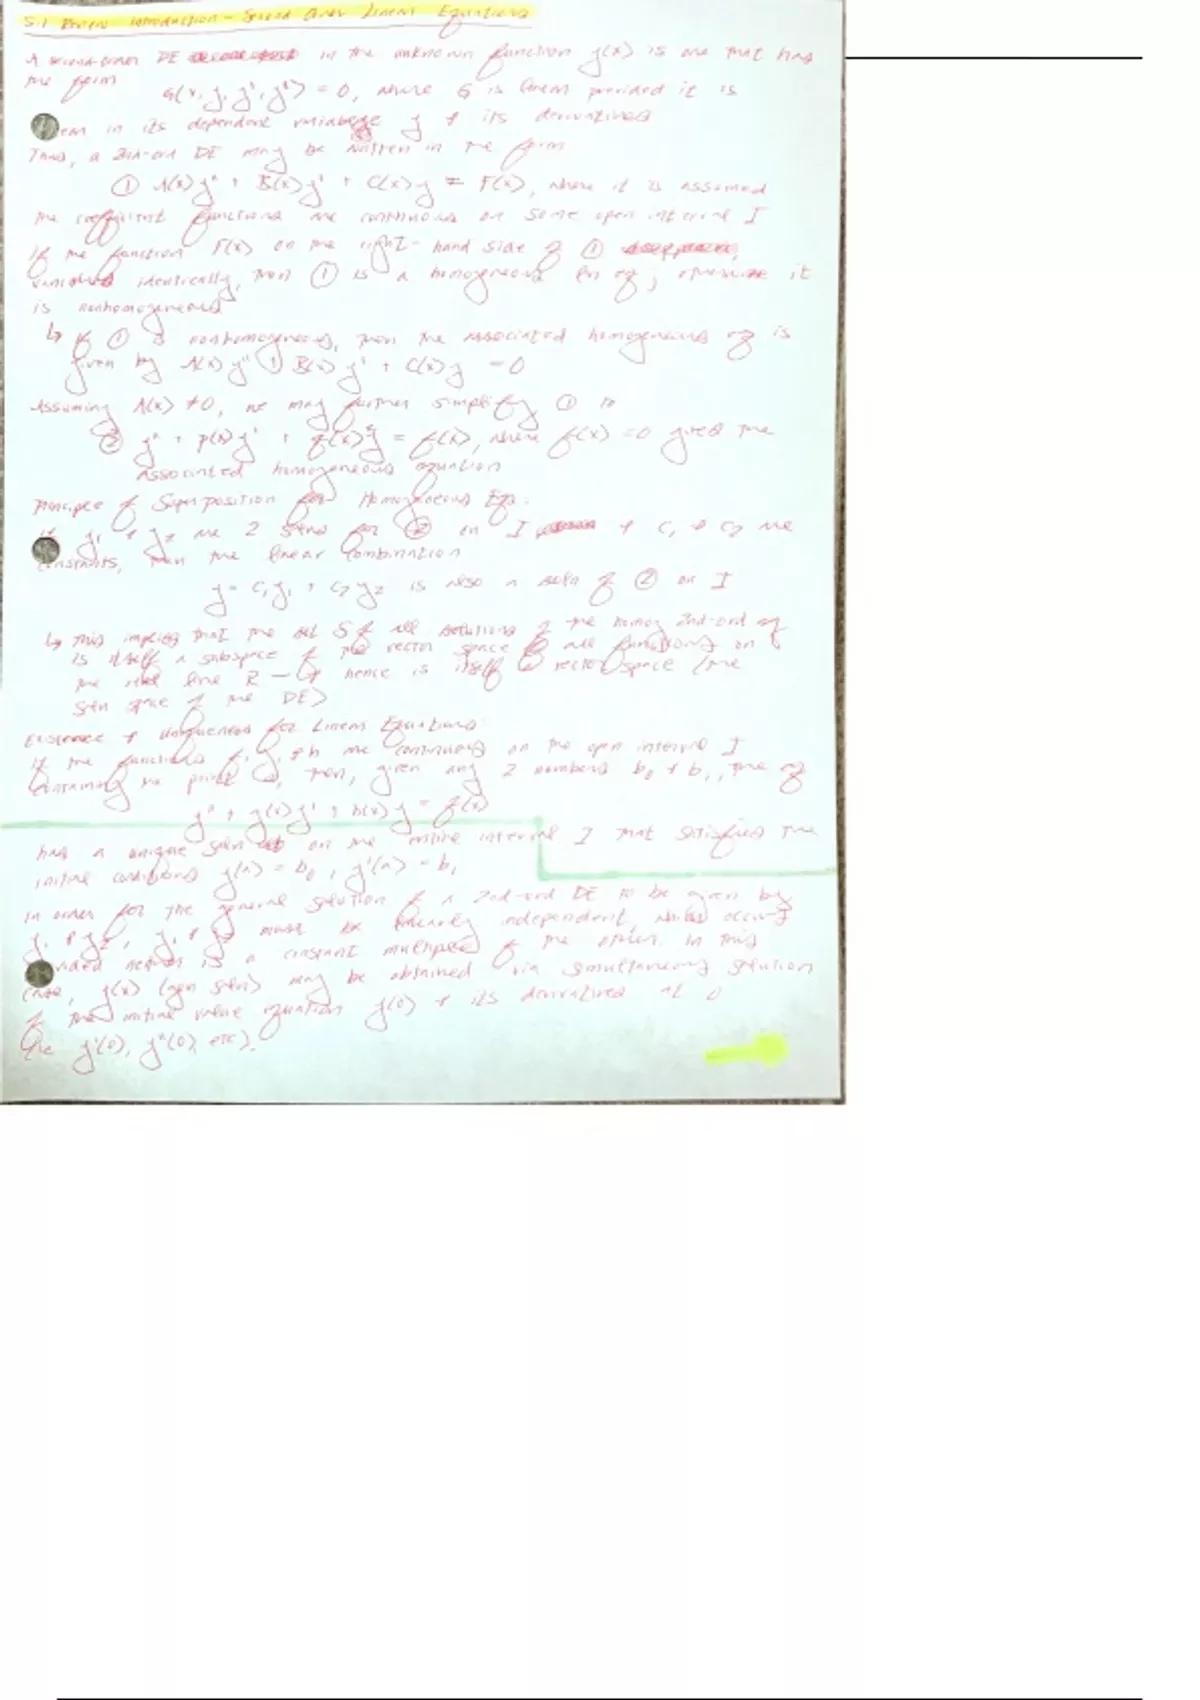 5.1 Review Introduction - Second Order Linear Equations
A second-order DE in the unknown function y(x) is one that has
the form
G(x, y, y', y") = 0, where G is linear provided it is
in its dependent variable y & its derivatives
Thus, a 2nd-ord DE may be written in the form
① A(x)y" + B(x)y' + C(x)y = F(x), where it is assumed
the coefficient functions are continuous on some open interval I
If the function F(x) on the right-hand side of ①
vanishes identically, then ① is a homogeneous lin eq; otherwise it
is nonhomogeneous
↳ If ① is nonhomogeneous, then the associated homogeneous eq is
given by A(x)y" + B(x)y' + C(x)y = 0
Assuming A(x) ≠ 0, we may further simplify ① to
② y" + p(x)y' + q(x)y = f(x), where f(x) = 0 gives the
associated homogeneous equation
Principle of Superposition for Homogeneous Eqs:
y₁ & y₂ are 2 solns for ② on I & c₁ & c₂ are
constants, then the linear combination
y = c₁y₁ + c₂y₂ is also a soln of ② on I
↳ This implies that the set S of all solutions of the homog 2nd-ord eq
is itself a subspace of the vector space of all functions on
the real line R — & hence is itself a vector space (the
soln space of the DE)
Existence & Uniqueness for Linear Equations:
If the functions f, g, & h are continuous on the open interval I
containing the point a, then, given any 2 numbers b₀ & b₁, the eq
y" + g(x)y' + h(x)y = f(x)
has a unique soln on the entire interval I that satisfies the
initial conditions y(a) = b₀, y'(a) = b₁
In order for the general solution of a 2nd-ord DE to be given by
y₁ & y₂, y₁ & y₂ must be linearly independent, which occurs
neither is a constant multiple of the other. In this
case, y(x) (gen soln) may be obtained via simultaneous solution
of the initial value equation y(0) & its derivatives at 0
(ie y'(0), y"(0), etc).